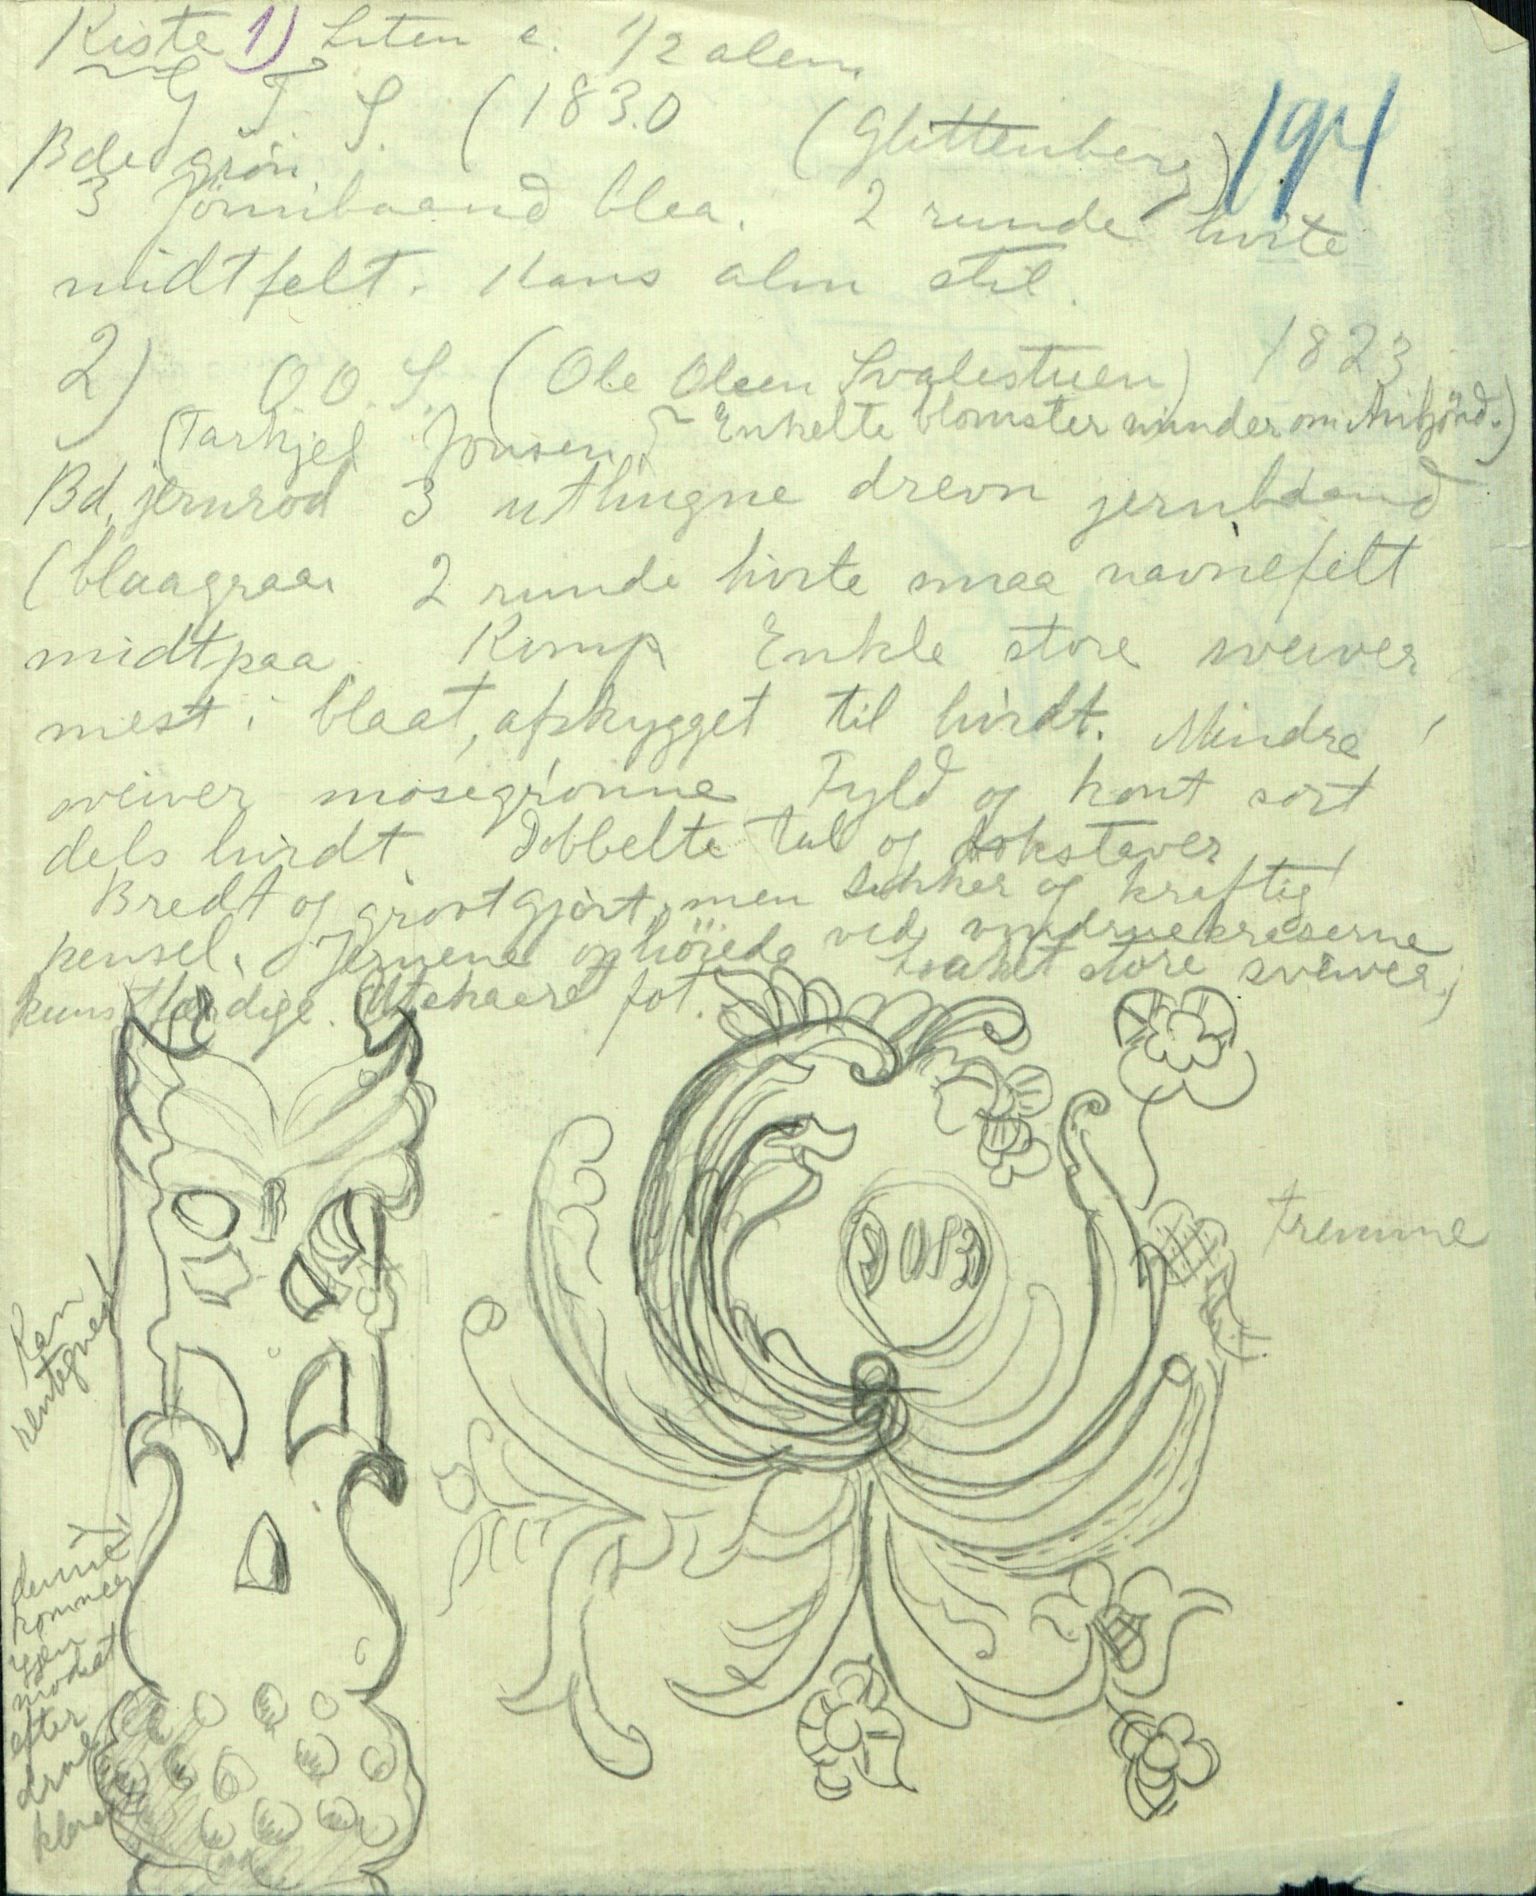 Kiste 1) Liten c. 1/2 alen.
G T S. (1830 (Glittenberg) 194
Bde grön
3 Jörnnbaand blaa. 2 runde hvite
midtfelt. Hans alm stil.
2) O O. S. (Ole Olsen Svalestuen) 1823
(Tarkjel Jonsen? Enkelte blomster minder om
Bd. jernrød 3 utlingne drevn jernbaand
(blaagraa. 2 runde hvite smaa navnefelt
midtpaa Komp Enkle store sveiver
mest i blaat, afskygget til hvidt. Mindre
sveiver mosegrønne Fyld og kont sort
dels hvidt Dobbelte tal og bokstaver
Bredt og grovt gjort, men sikker og kraftig
pensel. Jernene og ved
store sveiver,
kunstfærdige. Utskaaret fot.
1823
tremme
Kan
rentegnes
denne
kommer
igjen
efter